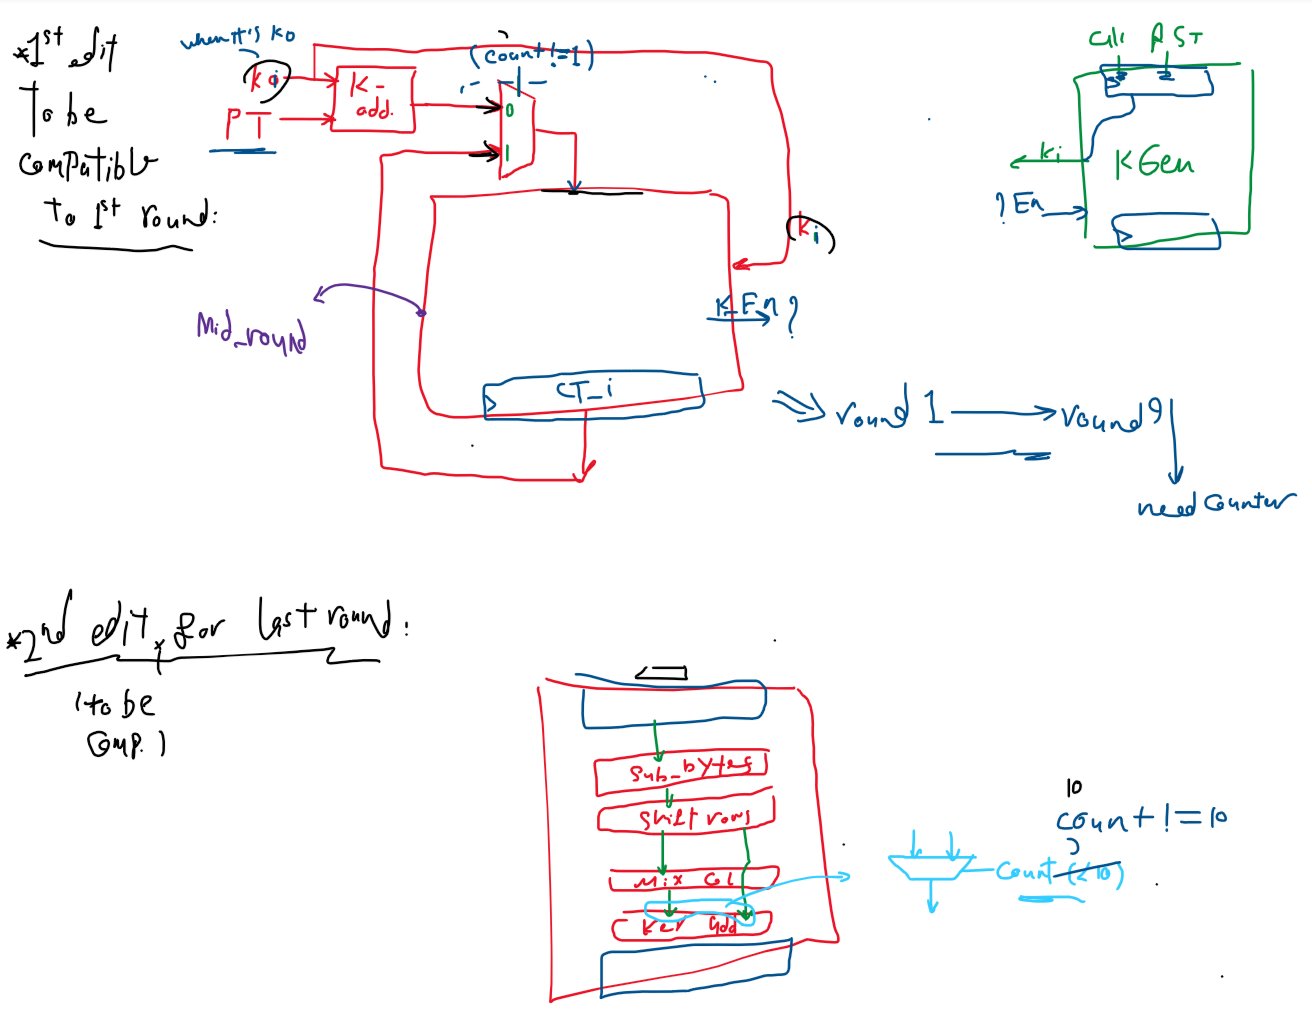 *1st edit
To be
compatible
to 1st round:
when it's k0
ki
PT
K-
add.
(count!=1)
0
1
ki
K_En?
Mid_round
CT_i
clk RST
ki
KGen
?En
round 1
round 9
need counter
*2nd edit for last round:
(to be
comp.)
Sub_bytes
Shift rows
Mix Col
Key Add
10
count!=10
count (<10)